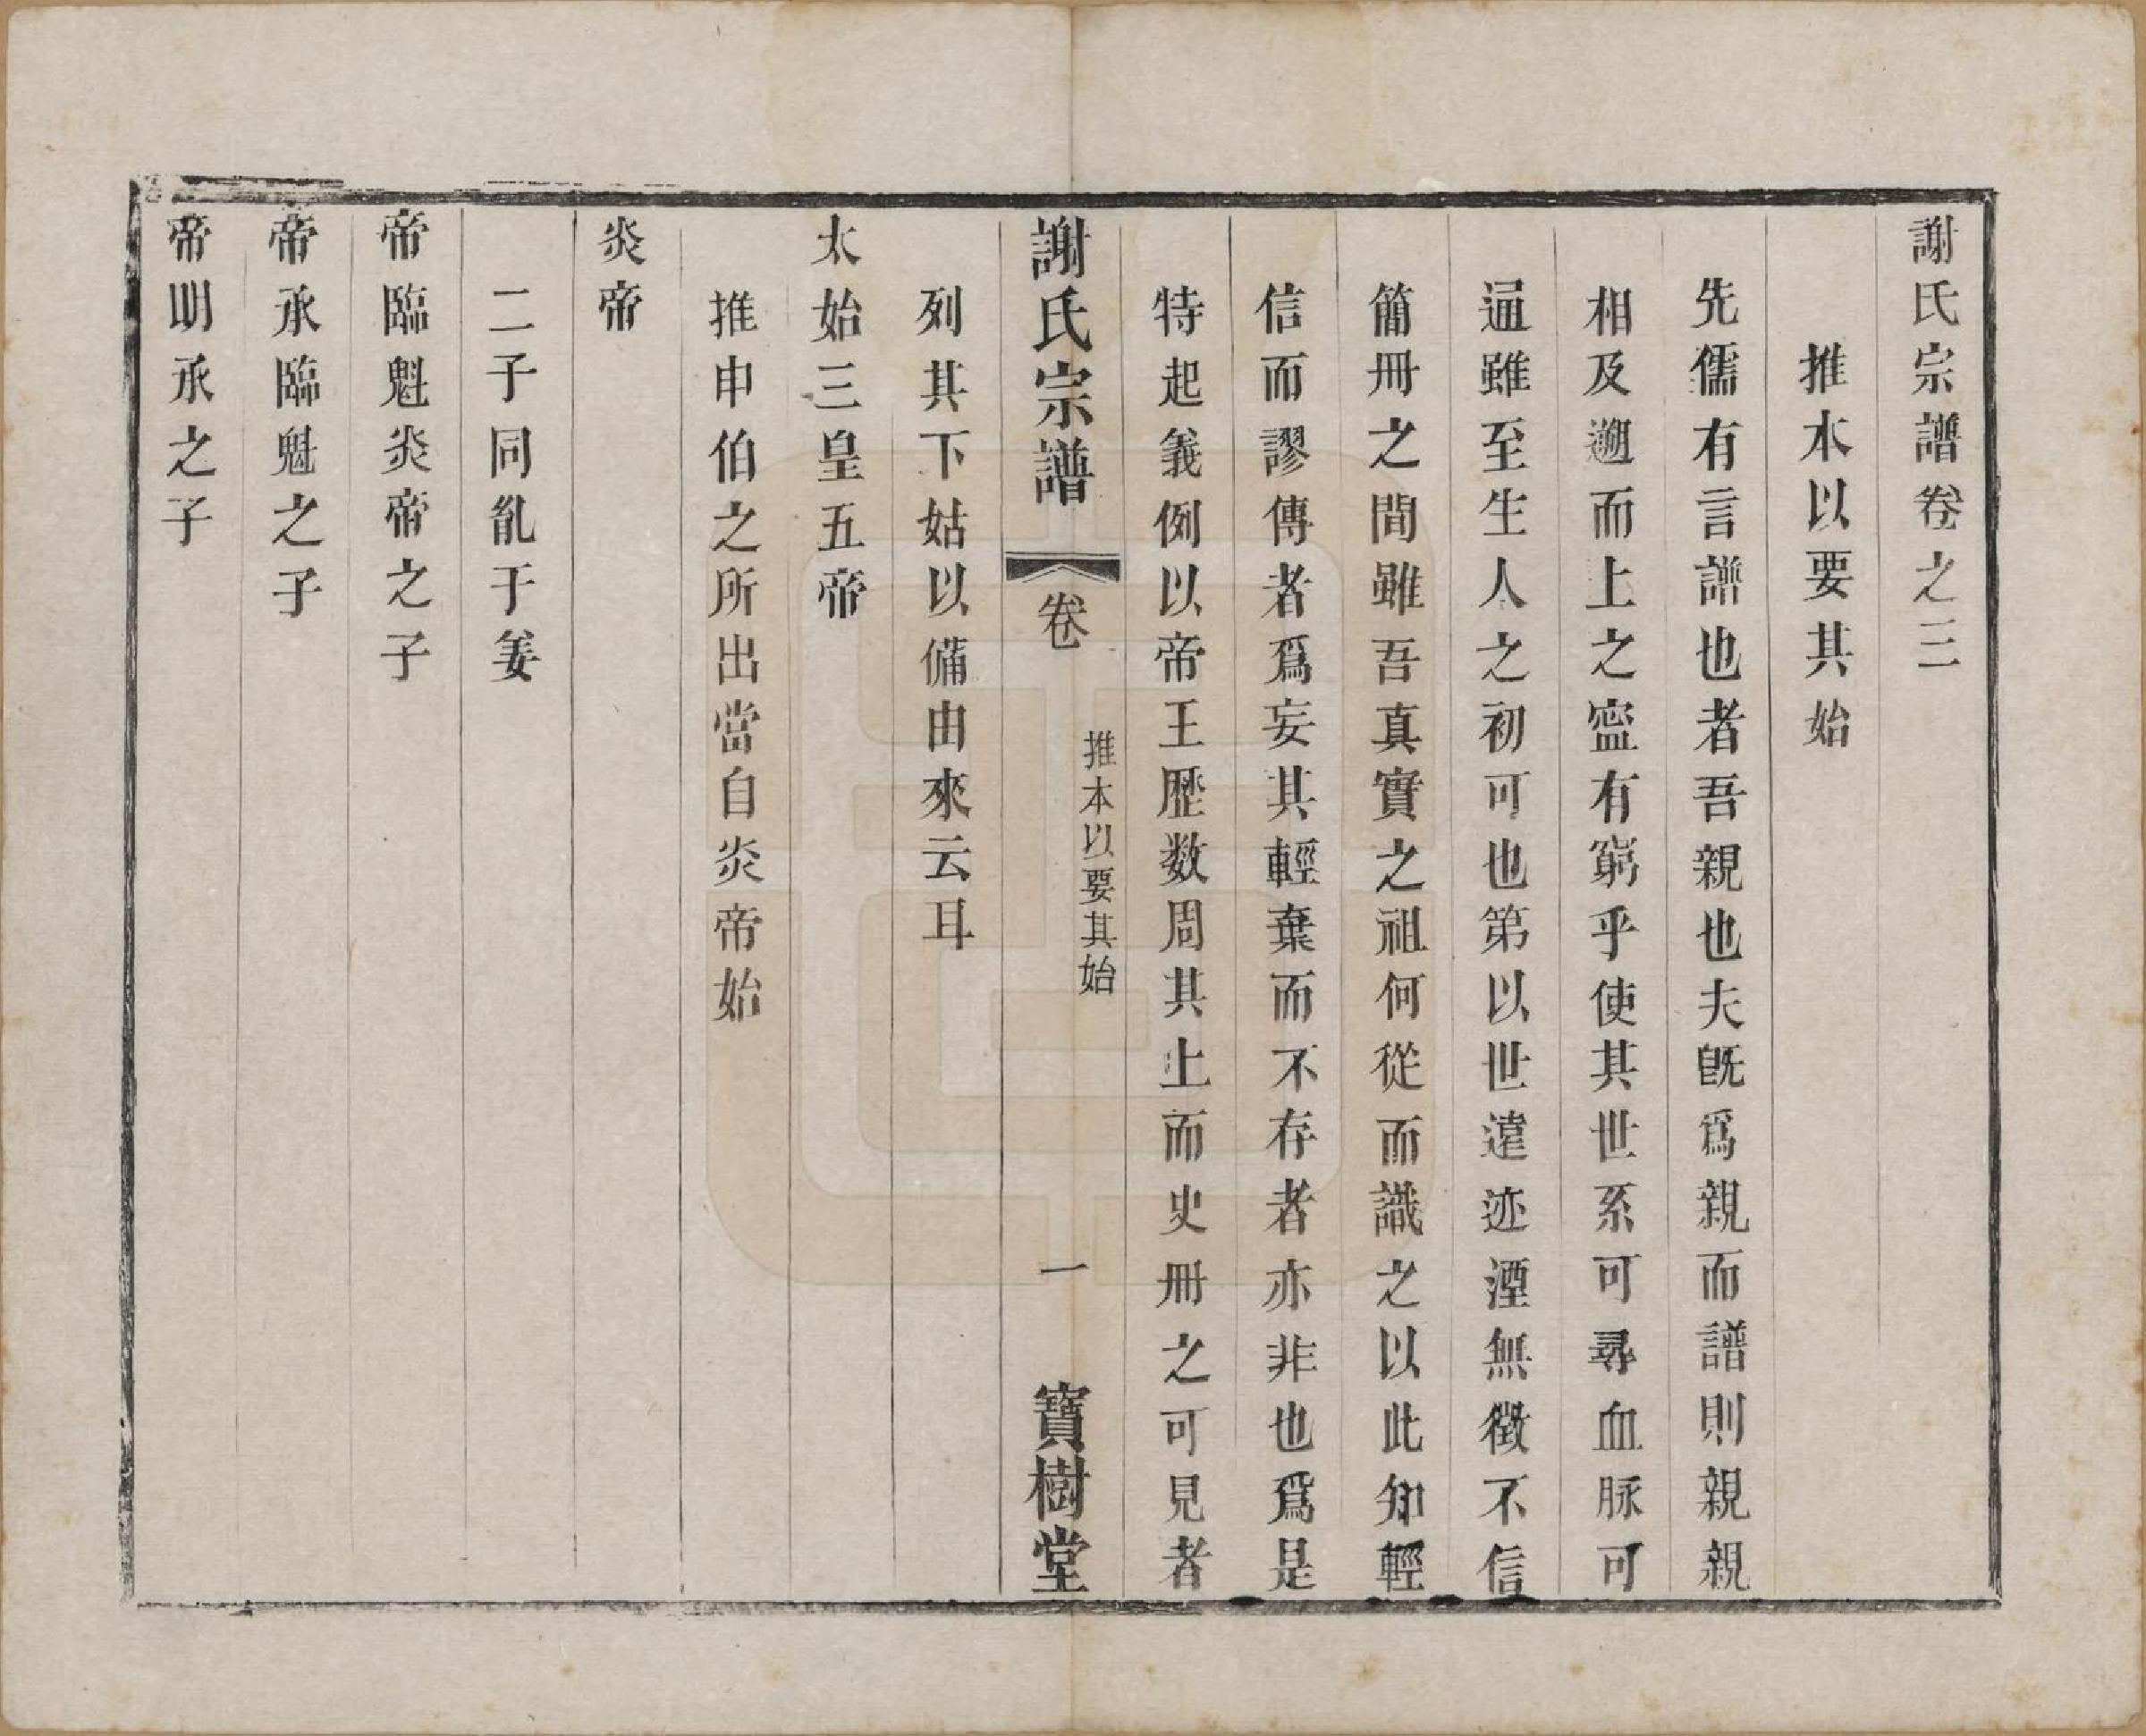 謝氏宗譜卷之三
推本以要其始
先儒有言譜也者吾親也夫旣爲親而譜則親親
相及遡而上之寍有窮乎使其世系可尋血脉可
通雖至生人之初可也第以世遠迹湮無徵不信
簡冊之間雖吾真實之祖何從而識之以此知輕
信而謬傳者爲妄其輕棄而不存者亦非也爲是
特起義例以帝王歷数周其上而史冊之可見者
謝氏宗譜
卷
推本以要其始
一
寶樹堂
列其下姑以備由來云耳
太始三皇五帝
推申伯之所出當自炎帝始
炎帝
二子同亂于姜
帝臨魁炎帝之子
帝承臨魁之子
帝明承之子